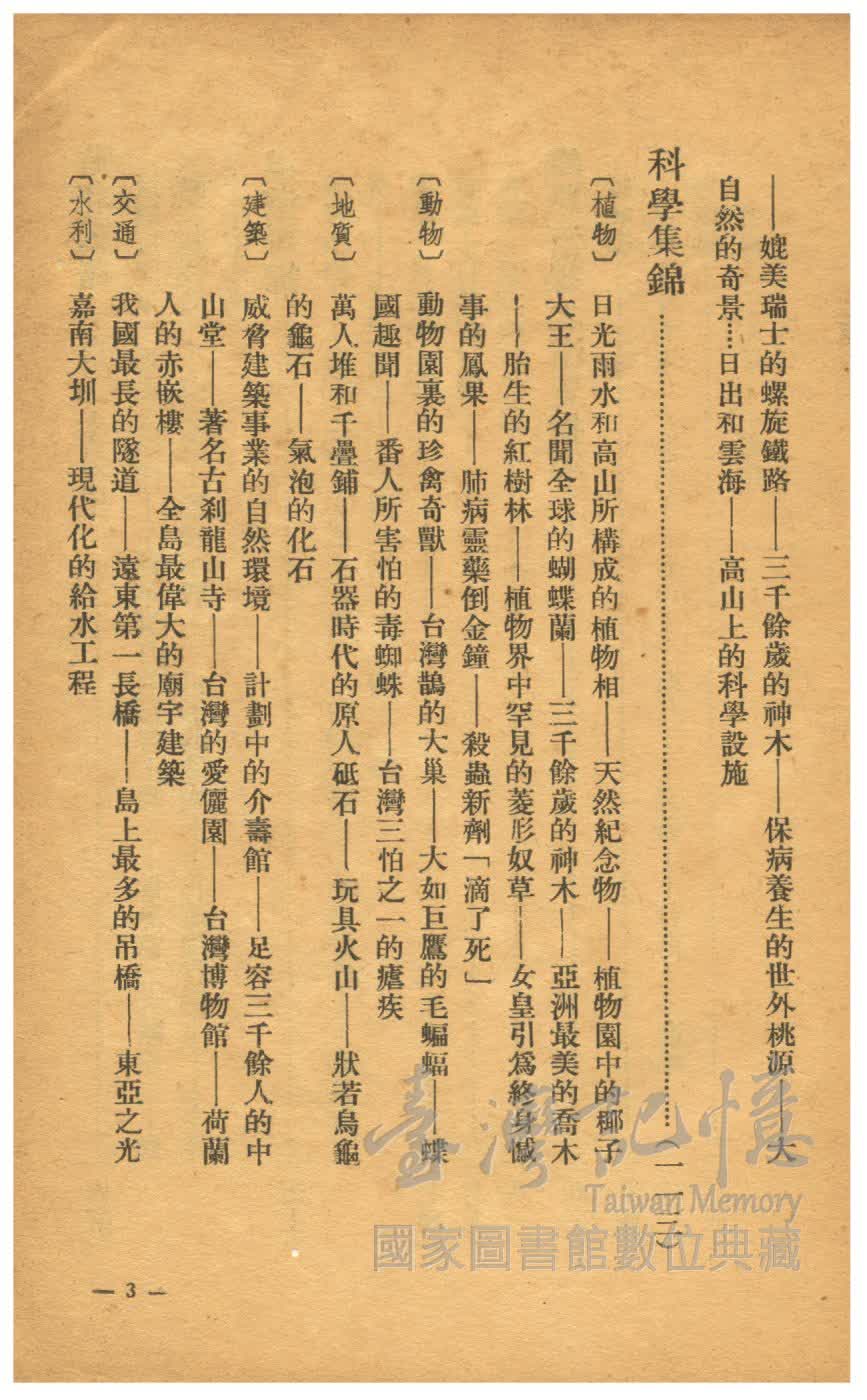 ——媲美瑞士的螺旋鐵路——三千餘歲的神木——保病養生的世外桃源——大
自然的奇景……日出和雲海——高山上的科學設施
科學集錦……………………………………………………（一二三）
〔植物〕 日光雨水和高山所構成的植物相——天然紀念物——植物園中的椰子
大王——名聞全球的蝴蝶蘭——三千餘歲的神木——亞洲最美的喬木
——胎生的紅樹林——植物界中罕見的菱形奴草——女皇引爲終身憾
事的鳳果——肺病靈藥倒金鐘——殺蟲新劑「滴了死」
〔動物〕 動物園裏的珍禽奇獸——台灣鵲的大巢——大如巨鷹的毛蝙蝠——蝶
國趣聞——番人所害怕的毒蜘蛛——台灣三怕之一的瘧疾
〔地質〕 萬人堆和千疊鋪——石器時代的原人砥石——玩具火山——狀若烏龜
的龜石——氣泡的化石
〔建築〕 威脅建築事業的自然環境——計劃中的介壽館——足容三千餘人的中
山堂——著名古刹龍山寺——台灣的愛儷園——台灣博物館——荷蘭
人的赤嵌樓——全島最偉大的廟宇建築
〔交通〕 我國最長的隧道——遠東第一長橋——島上最多的吊橋——東亞之光
〔水利〕 嘉南大圳——現代化的給水工程
— 3 —
臺灣記憶
Taiwan Memory
國家圖書館數位典藏